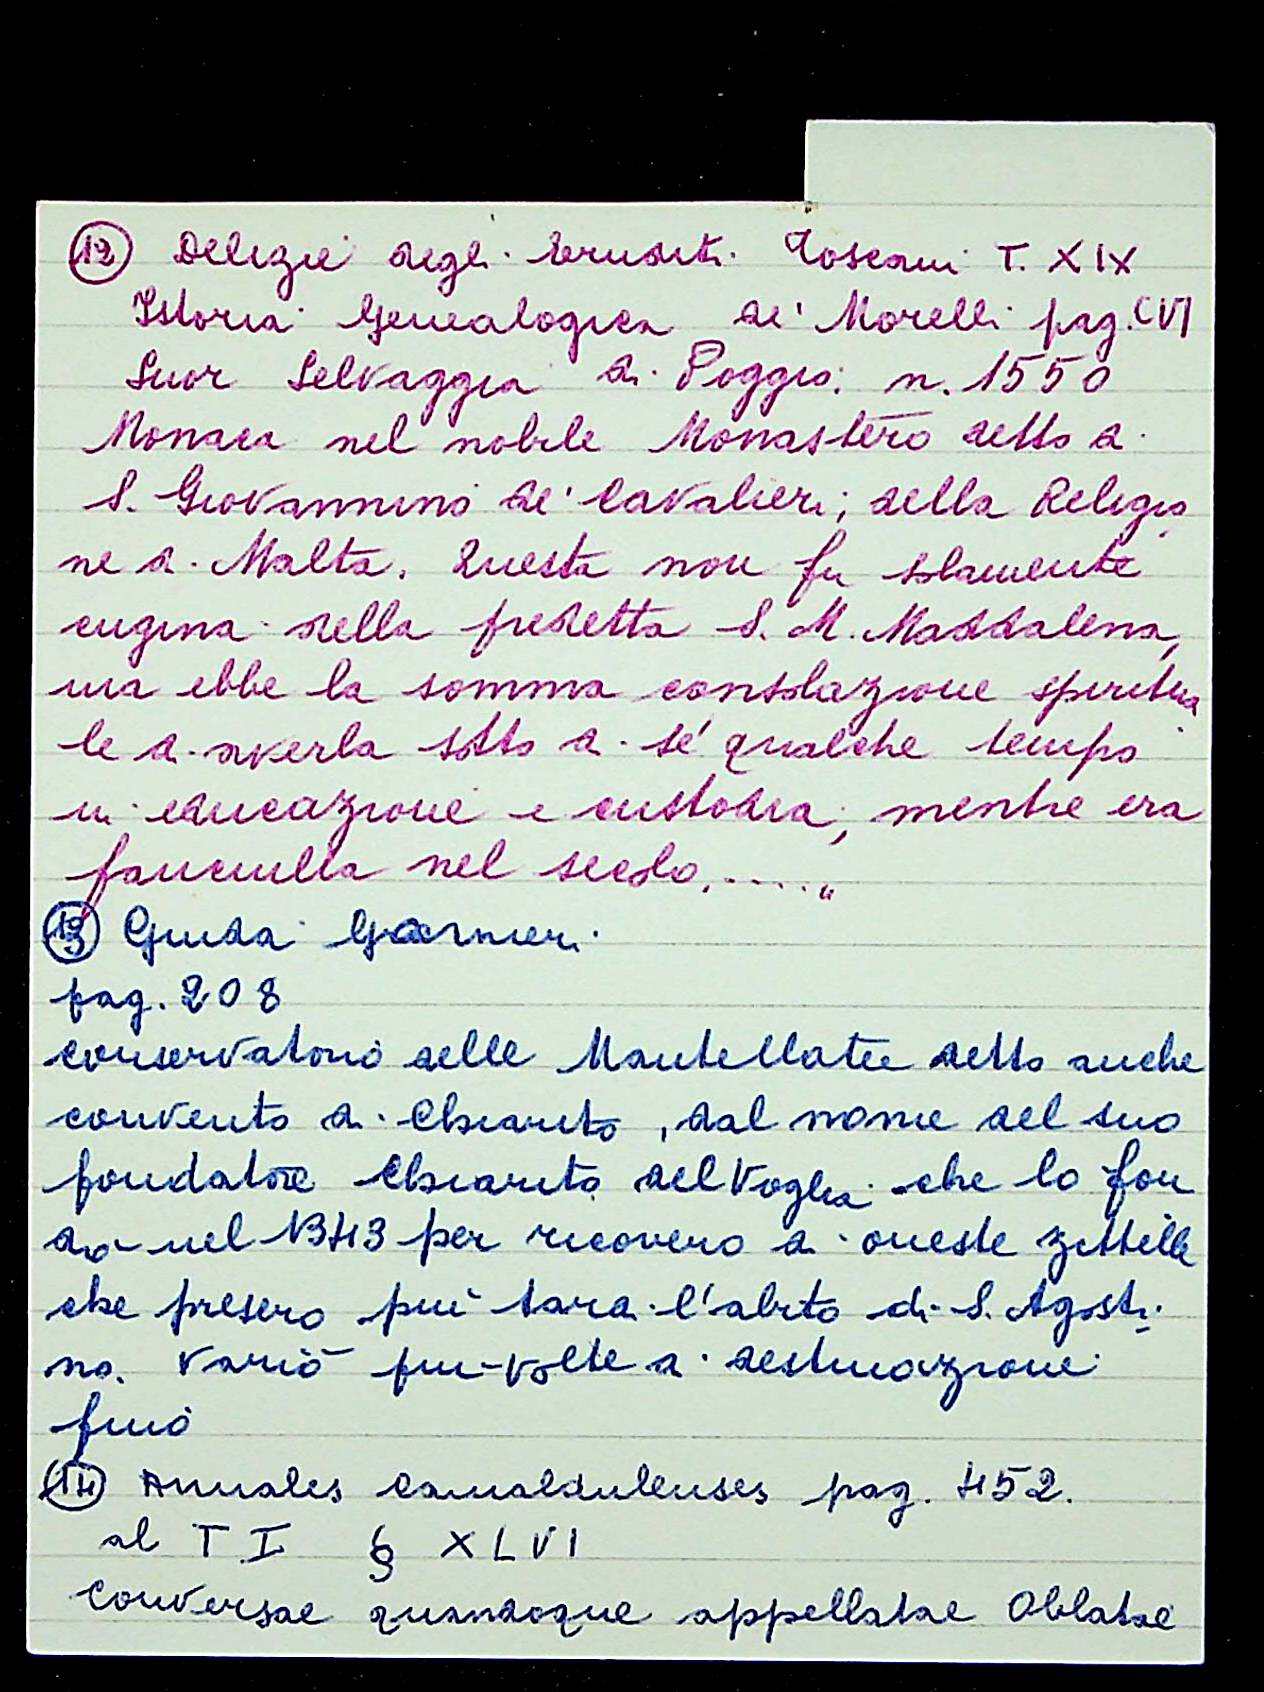 12 Delizie degli Eruditi Toscani T. XIX
Istoria Genealogica de' Morelli pag. CVI
Suor Selvaggia di Poggio n. 1550
Monaca nel nobile Monastero detto di
S. Giovannino de' Cavalieri, della Religio
ne di Malta. Questa non fu solamente
cugina della predetta S. M. Maddalena,
ma ebbe la somma consolazione spiritua
le di averla sotto di se' qualche tempo
in educazione e custodia, mentre era
fanciulla nel secolo. ....."
13 Guida Garnieri
pag. 208
conservatorio delle Mantellate detto anche
convento di Chiarito, dal nome del suo
fondatore Chiarito del Voglia che lo fon
dò nel 1343 per ricovero di oneste zittelle
che presero più tardi l'abito di S. Agosti
no. Variò più volte di destinazione
finió
14 Annales Camaldulenses pag. 452.
al T I § XLVI
Conversae quandoque appellatae Oblatae